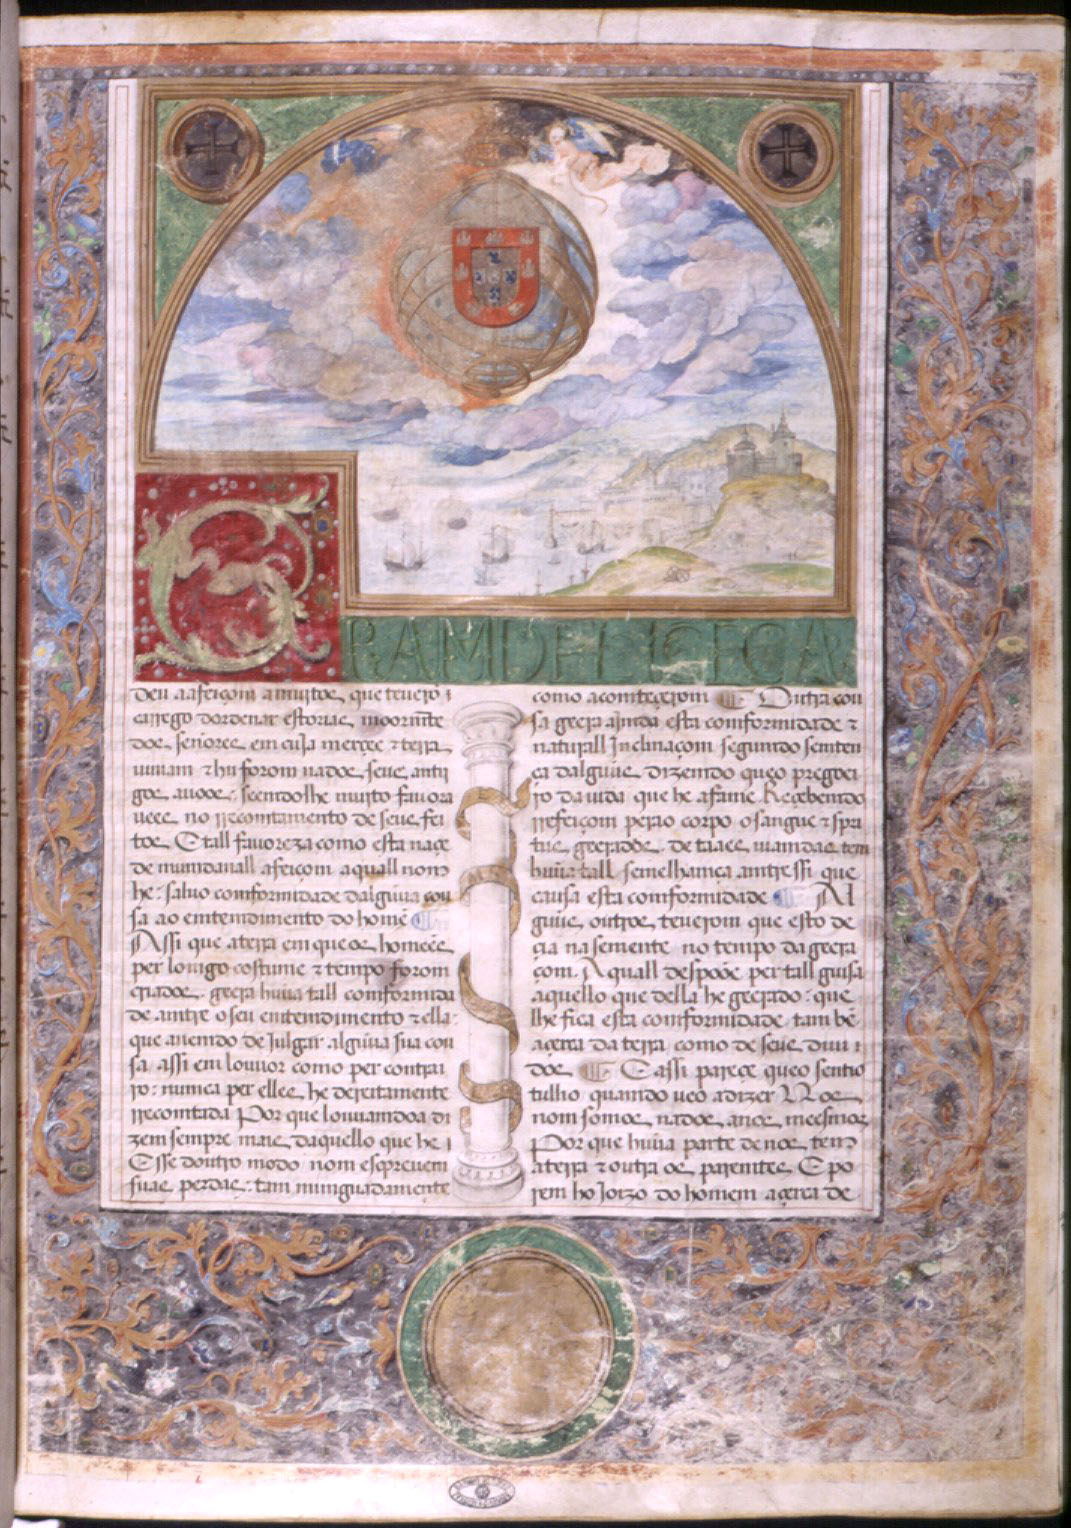 GRAMDE LICEÇA
deu a afeiçom a muitos que teuerõ
carrego dordenar estorias moormẽte
dos senores em cuja merçee ⁊ terra
uiuiam ⁊ hu forom nados seus antii
gos auoos: seendolhe muito fauora
uees no rrecomtamento de seus fei
tos Etall fauoreza como esta naçe
de mumdanall afeiçom a quall nom
he: saluo comformidade dalgũa cou
sa ao emtemdimento do homẽ
Assi que a terra em que os homẽes
per lomgo costume ⁊ tempo forom
criados geera hũua tall comformida
de amtre o seu emtemdimento ⁊ ella
que auemdo de julgar algũua sua cou
sa assi em louuor como per contrai
ro: numca per elles he dereitamente
rrecomtada Por que louuamdoa di
zem sempre mais daquello que he
E sse doutro modo nom espreuem
suas perdas: tam minguadamente
como acomteçerom Outra cou
sa geera ajmda esta comformidade ⁊
naturall jnclinaçom segumdo semten
ça dalgũus dizemdo queo pregoei
ro da uida que he a fame Reçebemdo
rrefeiçom pera o corpo o sangue ⁊ spri
tus geerados de taaes uiamdas tem
hũua tall semelhamça amtre ssi que
causa esta comformidade Al
gũus outros teuerom que esto de
çia na semente no tempo da geera
çom A quall despoõe per tall guisa
aquello que della he geerado: que
lhe fica esta comformidade tam bẽ
açerca da terra como de seus diuu
dos E assi pareçe queo sentio
tullio quamdo ueo a dizer Nos
nom somos nados a nos meesmos
Por que hũua parte de nos tem
a terra ⁊ outra os paremtes E po
rem ho joizo do homem açerca de